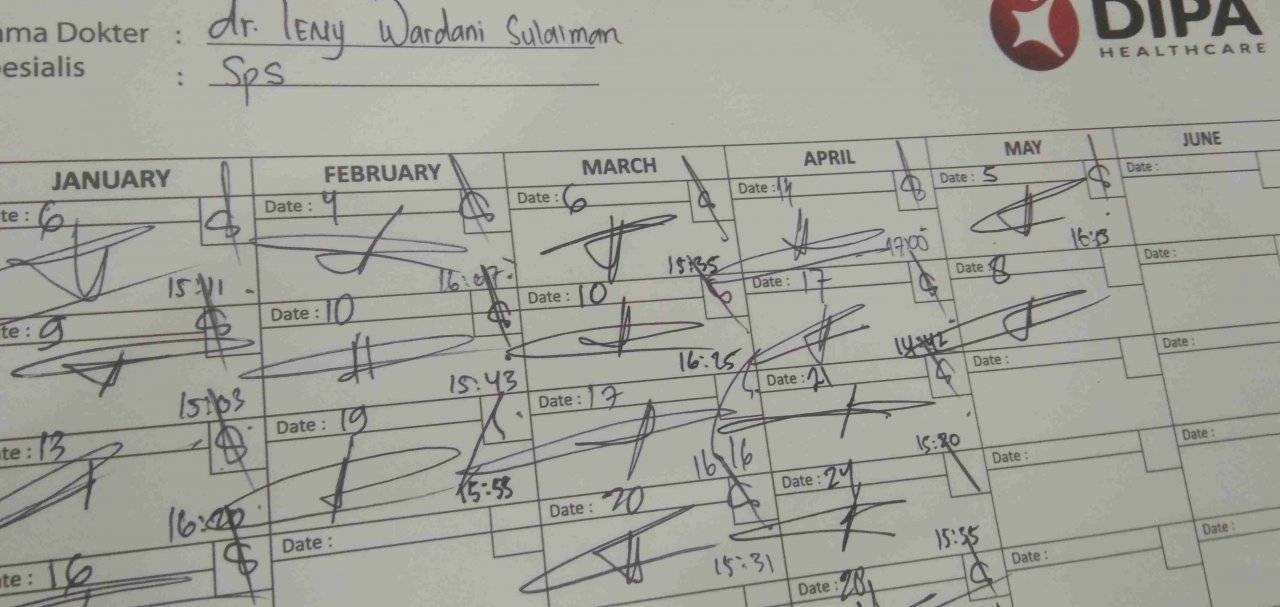 ama Dokter : dr. Leny Wardani Sulaiman
esialis : Sps
DIPA
HEALTHCARE
JANUARY FEBRUARY MARCH APRIL MAY JUNE
te : 6 Date : 4 Date : 6 Date : 14 Date : 5 Date :
15:11 16:07 15:35 17:00 16:13
te : 9 Date : 10 Date : 10 Date : 17 Date : 8 Date :
15:03 15:43 16:25 14:42
te : 13 Date : 19 Date : 17 Date : 21 Date : Date :
16:20 15:55 16:16 15:20
te : 16 Date : Date : 20 Date : 24 Date : Date :
15:31 15:35
Date : 28 Date : Date :